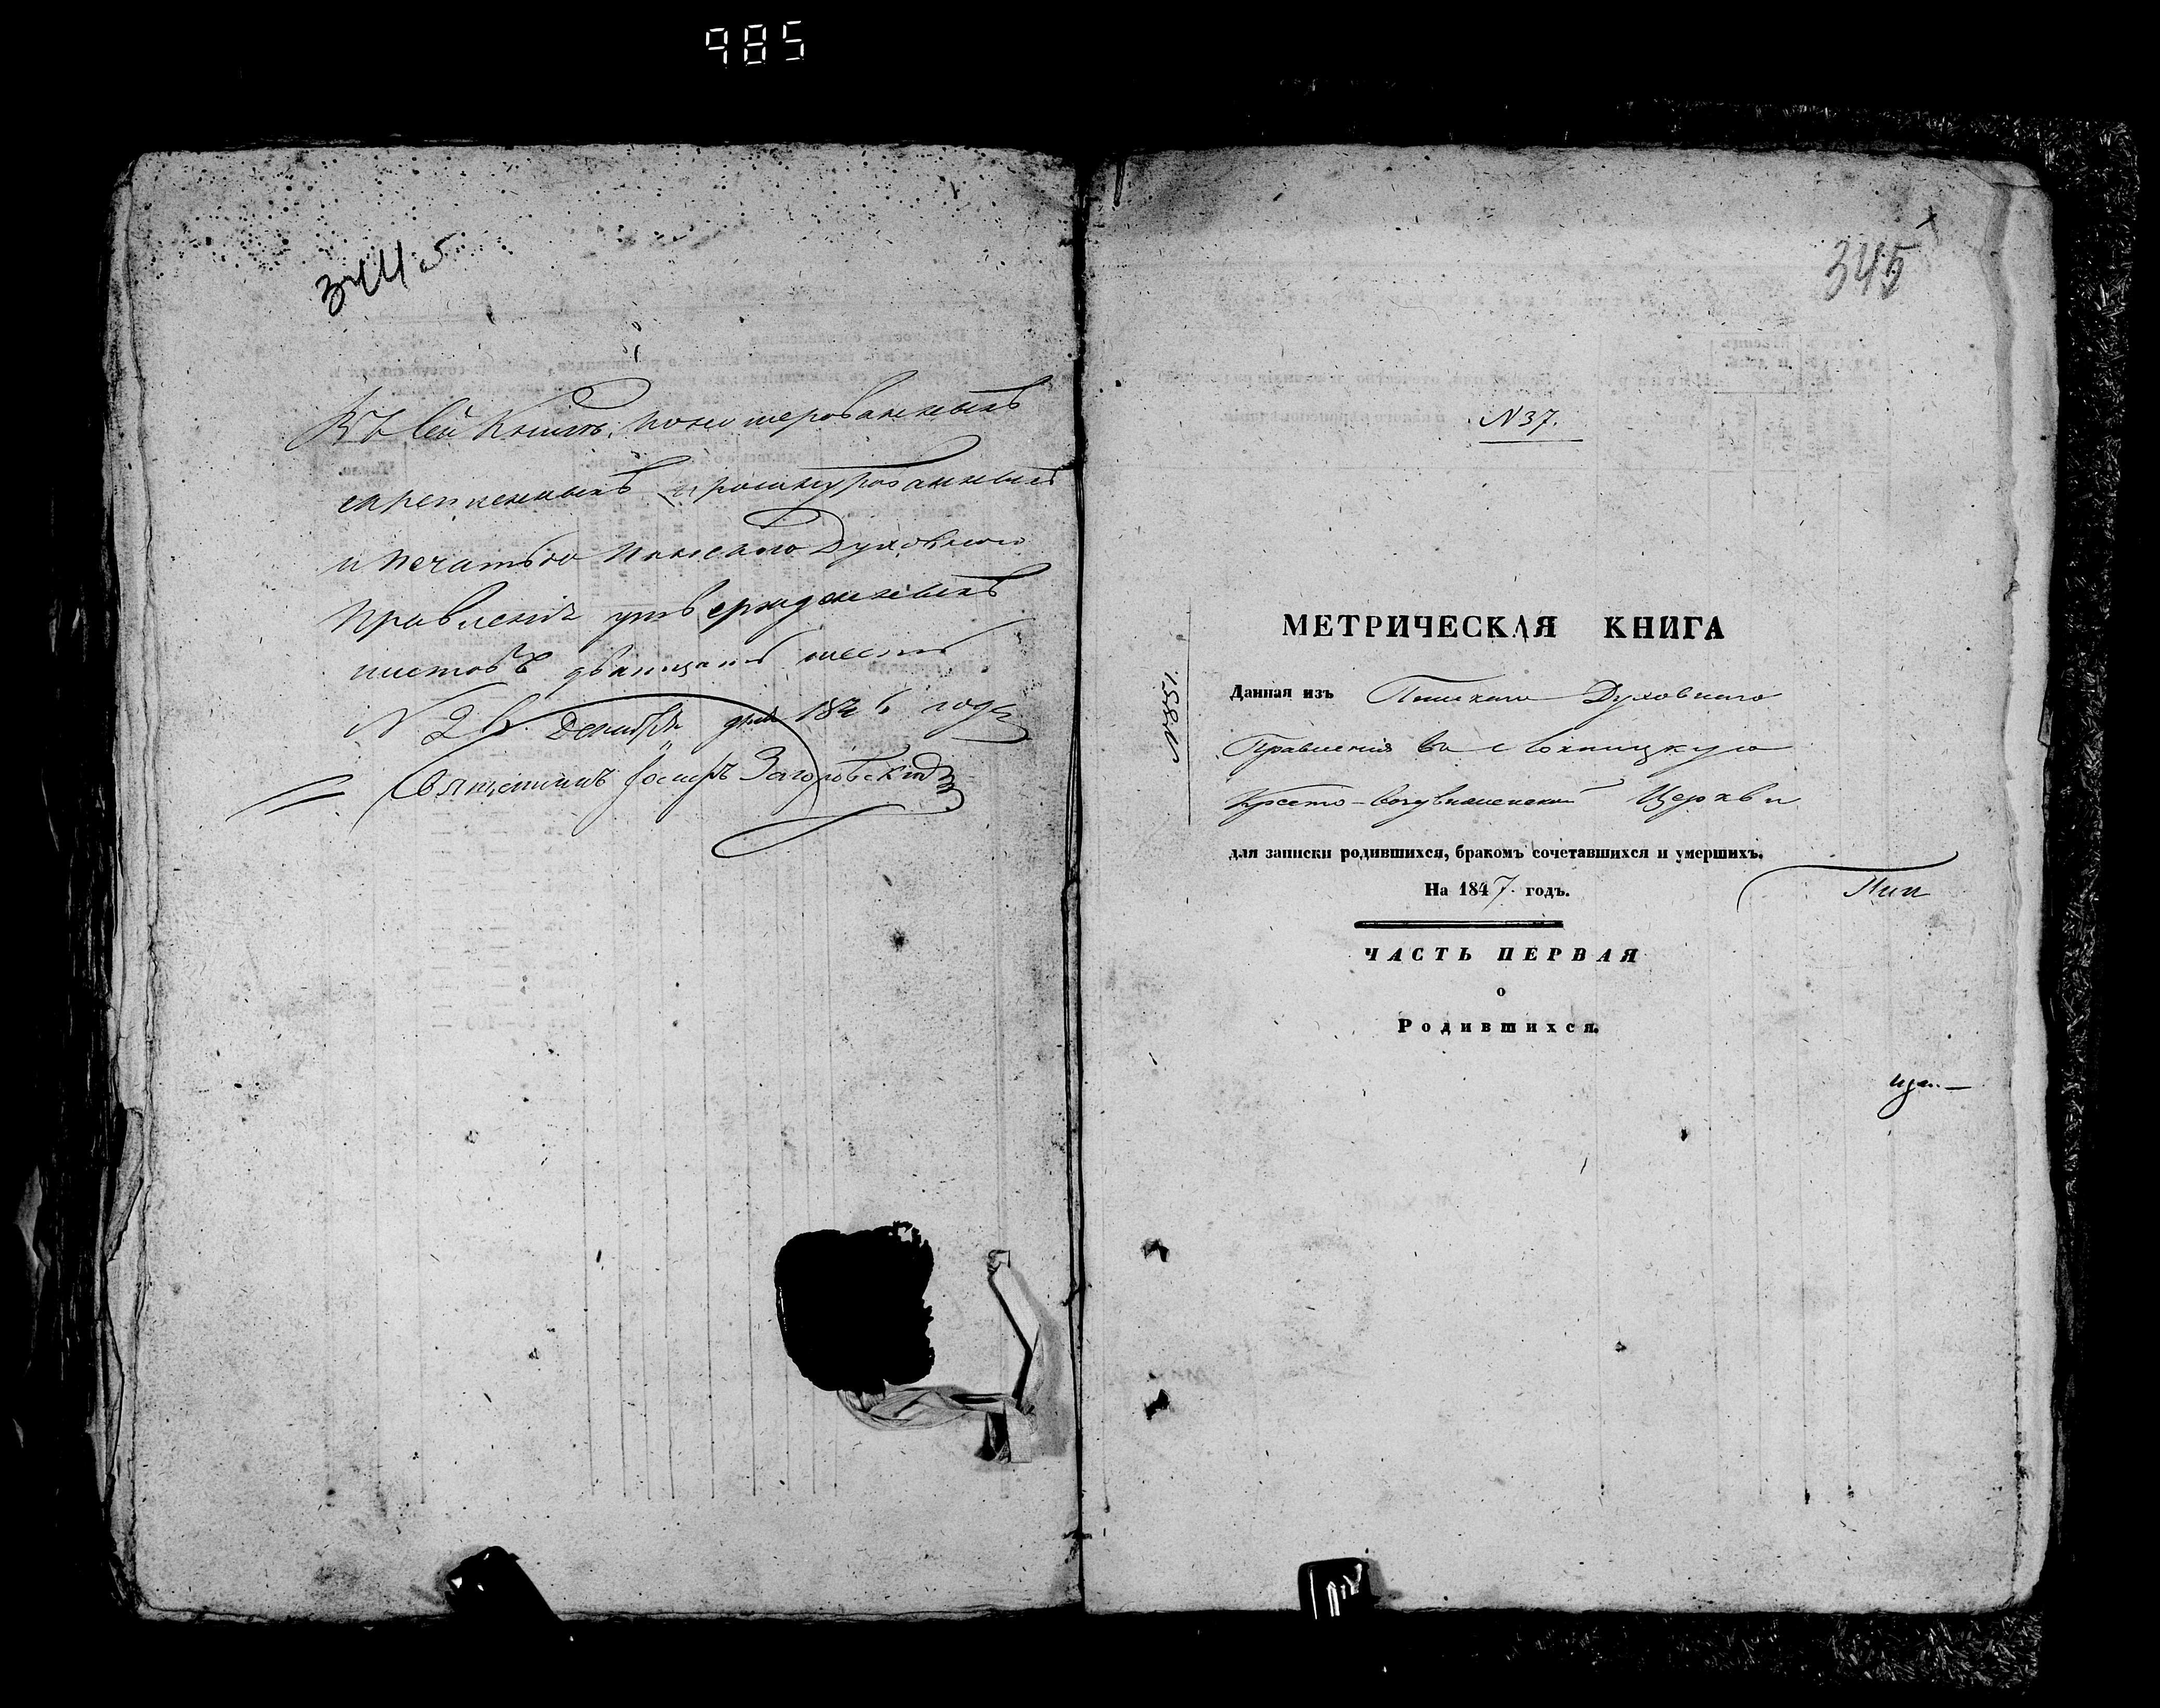 985
344 об
Въ сей Книгѣ пономерованныхъ
скрепленныхъ прошнурованныхъ
и печатью Пинскаго Духовнаго
Правленія утвержденныхъ
листовъ двадцать шесть
N 26. Декабря дня 1846 года
Священникъ Іосифъ Загоровскій
345
N 37.
N 851
МЕТРИЧЕСКАЯ КНИГА
Данная изъ Пинскаго Духовнаго
Правленія въ
Кресто-Воздвиженской Церкви
для записки родившихся, бракомъ сочетавшихся и умершихъ.
На 1847 годъ.
ЧАСТЬ ПЕРВАЯ
о
Родившихся.